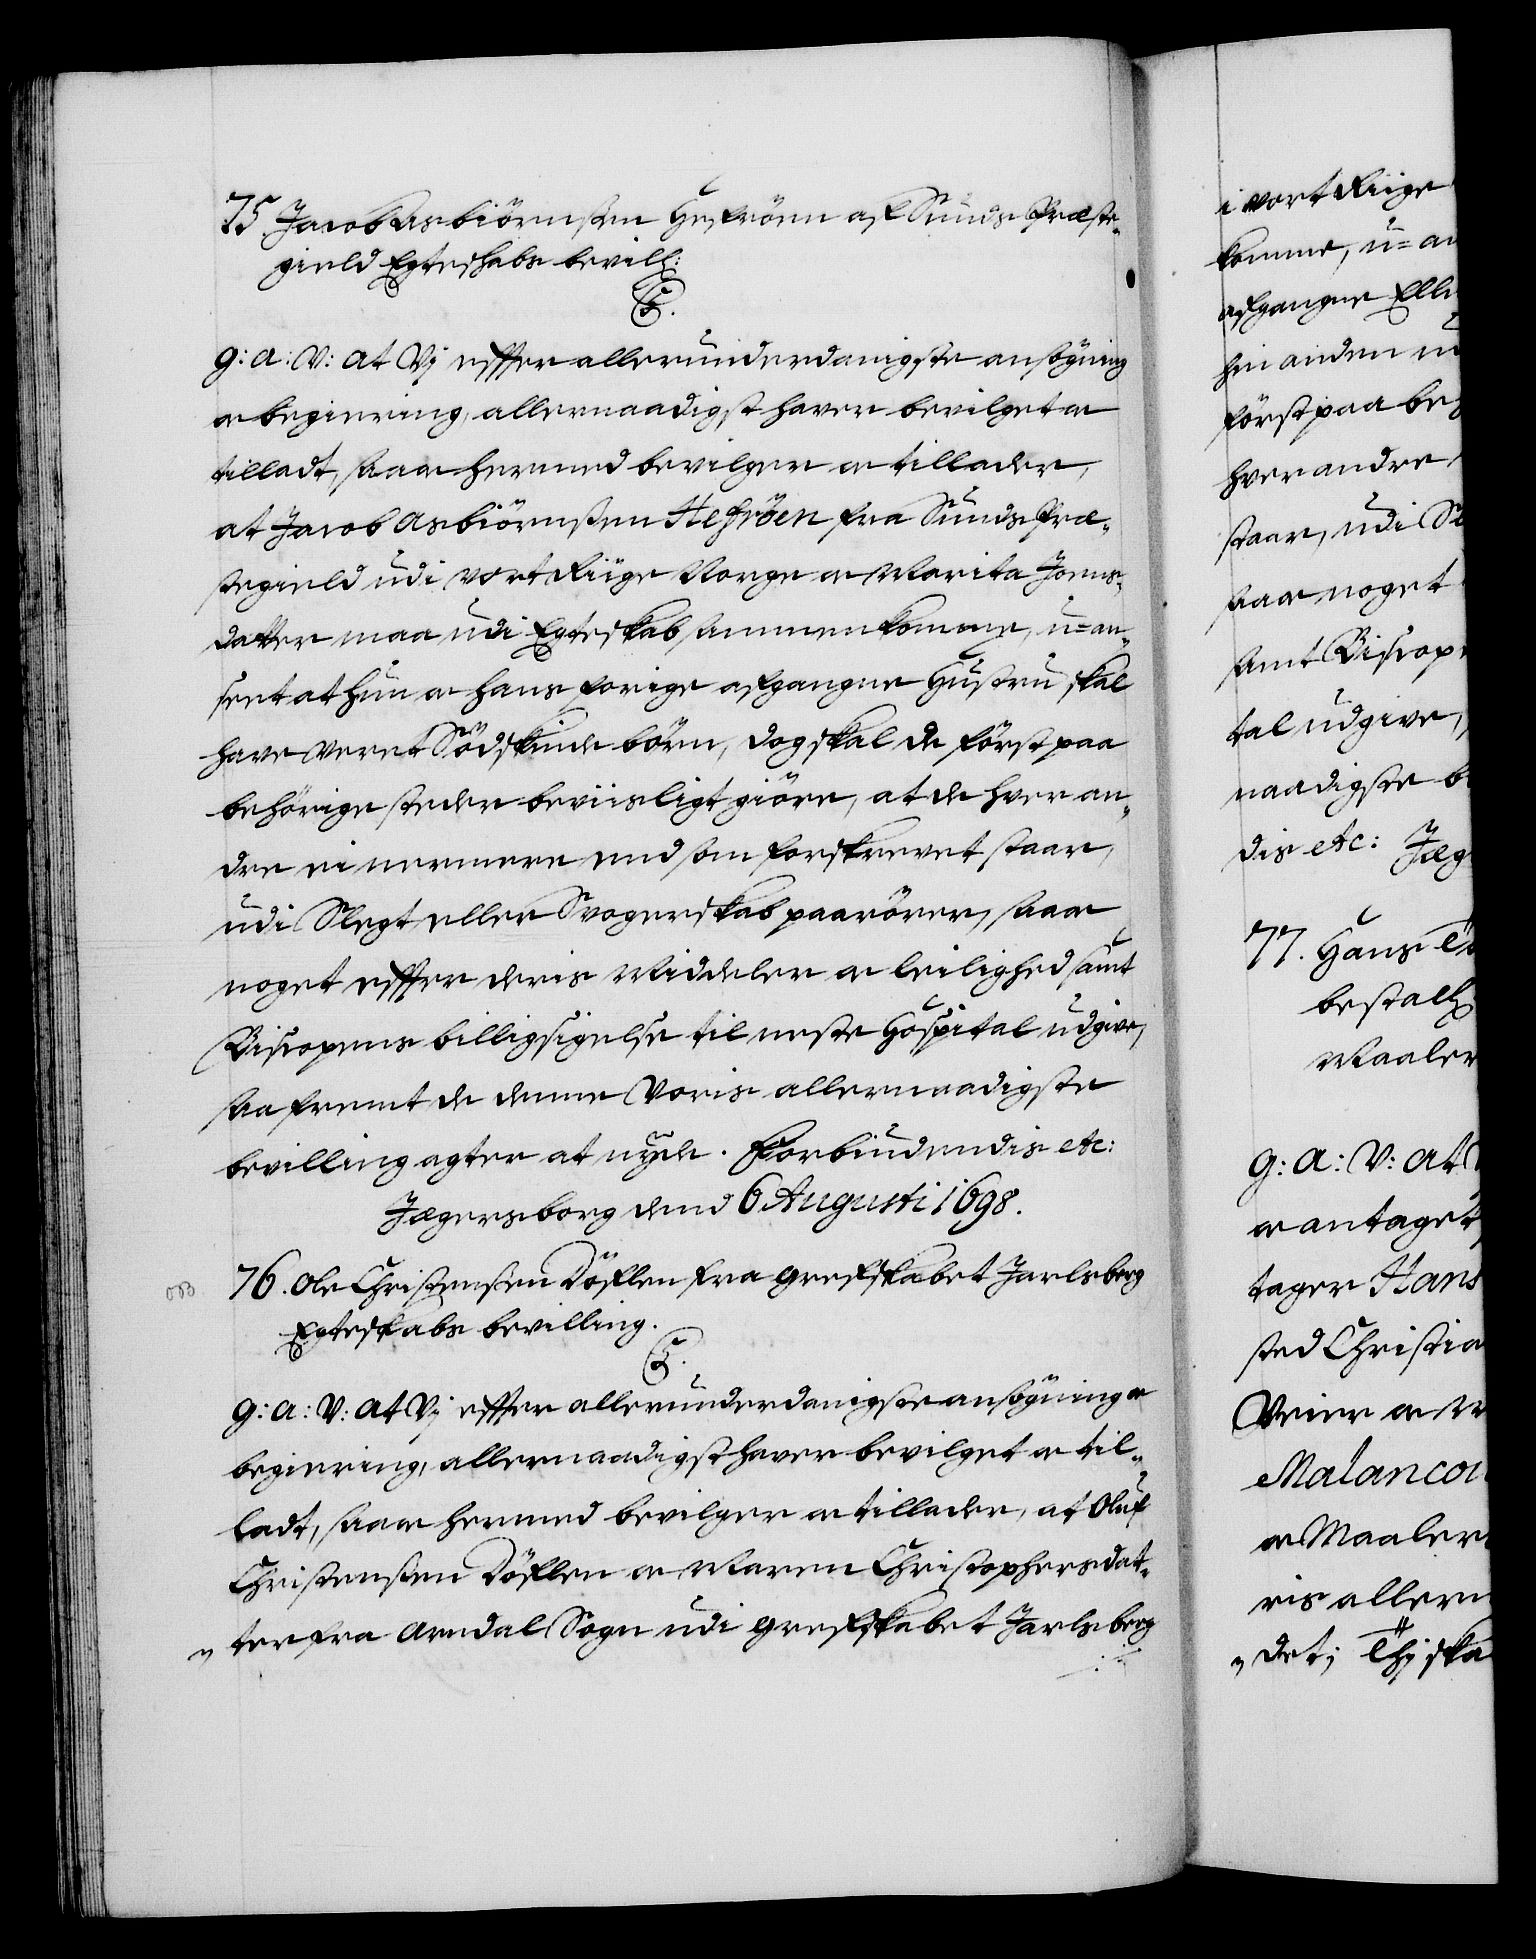 75. Jacob Asbiörnssen Hesröen af Sunds Præste-
gield Egteskabs bevill:
C5.
G: A: V: at Vj effter allerunderdanigste ansøgning
og begiering, allernaadigst haver bevilget og
tilladt, saa og hermed bevilger og tillader,
at Jacob Asbiörnssen Hesröen fra Sunds Præ-
stegield udi vort Riige Norge og Marita Joens-
datter maa udi Egteskab sammenkomme, u=an-
seet at hun og hans forige afgangne Hustru skal
have veret Södskinde börn, dog skal de först paa
behörige steder beviisligt giöre, at de hver an-
dre ei nermere end som forskrevet staar,
udi Slegt eller Svogerskab paarörer, saa og
noget effter deris Middeler og leilighed samt
Biscopens billigsigelse til neste Hospital udgive,
saa fremt de denne Voris allernaadigste
bevilling agter at nyde. Forbiudendis etc:
Jægersborg dend 6 Augusti 1698.
76. Ole Christenssen Döflen fra Grefskabet Jarlsberg
Egteskabs bevilling.
G: A: V: at Vj effter allerunderdanigste ansøgning og
begiering, allernaadigst haver bevilget og til-
ladt, saa og hermed bevilger og tillader, at Oluf
Christenssen Döflen og Maren Christophersdat-
ter fra Arndal Sogn udi Grefskabet Jarlsberg
i vort Riige
komme, u=an
afgangne
hin anden
först paa be
hver andre
staar, udi
saa og noget
samt Biscop
tal udgive,
naadigste b
dis etc: Jæg
77. Hans
bestall
Maaler
G: A: V: at
og antaget
tager Hans
sted Christia
Veier og
Malancou
og Maaler
ris allern
det; Thj ska